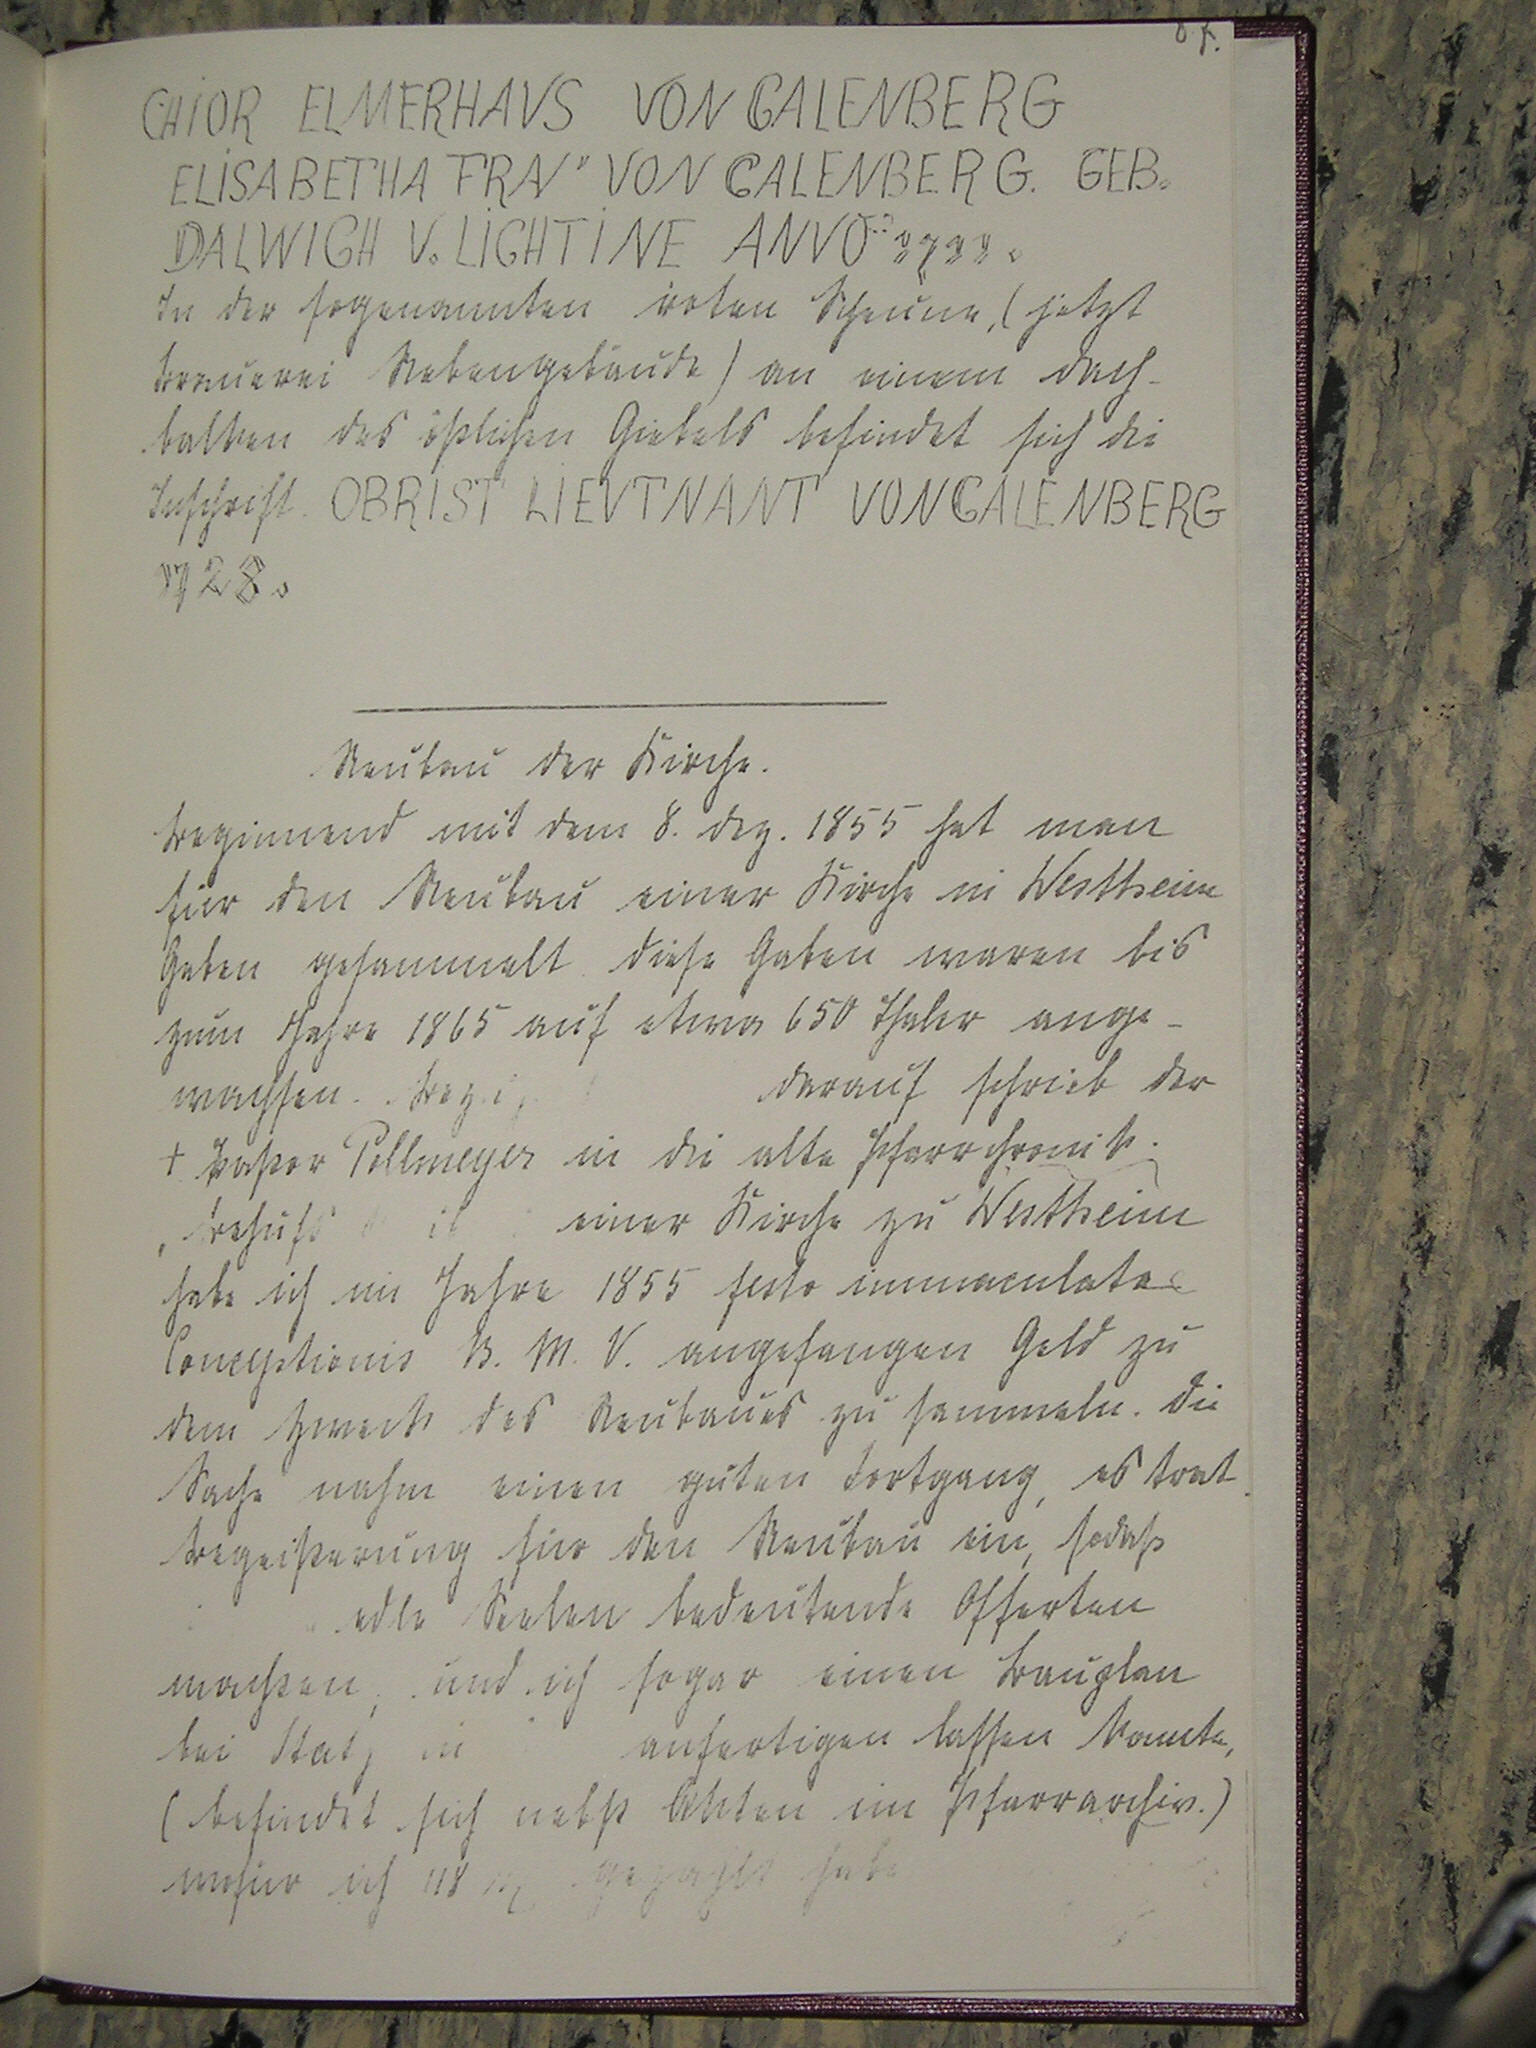 CHIOR ELMERHAVS VON CALENBERG
ELISABETHA FRAV VON CALENBERG. GEB.
DALWIGH V. LIGHTINE ANVO
In der sogenannten roten Scheune, (jetzt
Brauerei Nebengebäude) an einem Dach-
balken des östlichen Giebels befindet sich die
Inschrift. OBRIST LIEVTNANT VON CALENBERG
1728.
Neubau der Kirche.
Beginnend mit dem 8. Dez. 1855 hat man
für den Neubau einer Kirche in Westheim
Gaben gesammelt. Diese Gaben waren bis
zum Jahre 1865 auf etwa 650 Thaler ange-
wachsen. darauf schrieb der
+ Pastor Pollmeyer in die alte Pfarrchronik.
„Behufs einer Kirche zu Westheim
habe ich im Jahre 1855 festo immaculatae
Conceptionis B. M. V. angefangen Geld zu
dem Zweck des Neubaues zu sammeln. Die
Sache nahm einen guten Fortgang, es trat
Begeisterung für den Neubau ein, sodaß
edle Seelen bedeutende Offerten
machten, und ich sogar einen Bauplan
bei Statz in anfertigen lassen konnte,
(befindet sich nebst Akten im Pfarrarchiv.)
wofür ich 118 gezahlt habe